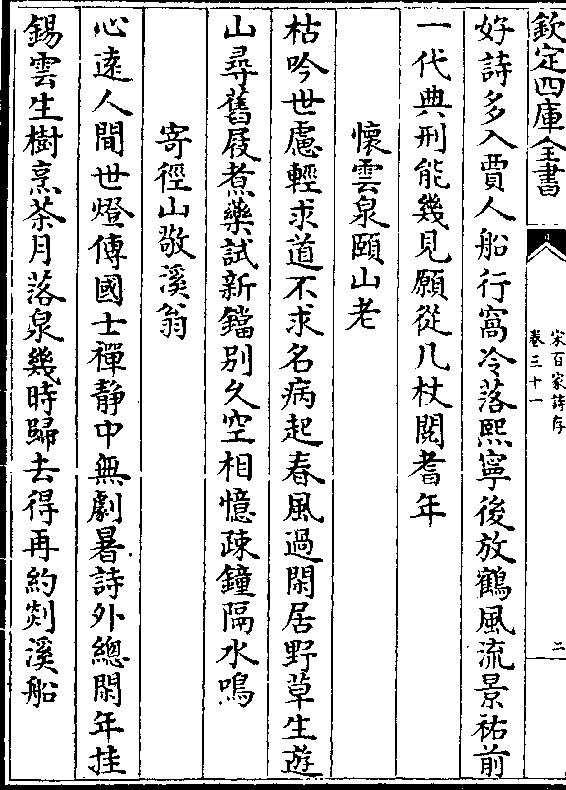 欽定四庫全書
宋百家詩存
卷三十一
二
好詩多入賈人船行窩冷落熙寧後放鶴風流景祐前
一代典刑能幾見願從几杖閲耆年
懷雲泉頤山老
枯吟世慮輕求道不求名病起春風過閑居野草生遊
山尋舊屐煮藥試新鐺别久空相憶疎鐘隔水鳴
寄徑山敬溪翁
心逺人間世燈傳國士禪静中無劇暑詩外總閑年挂
錫雲生樹烹茶月落泉幾時歸去得再約剡溪船